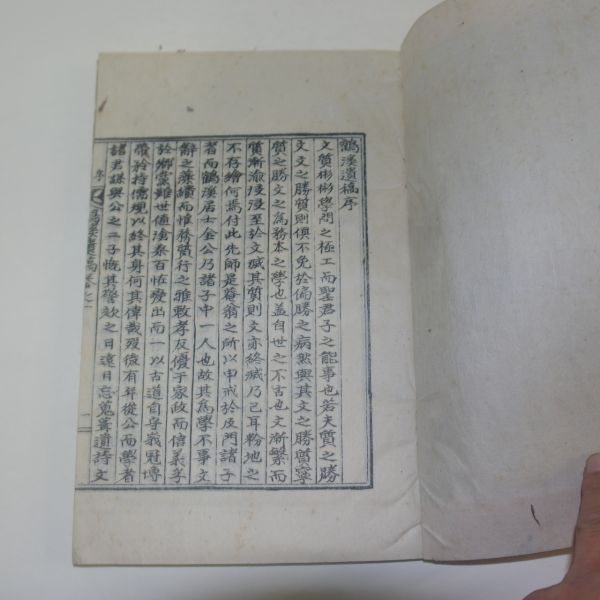 鶴溪遺稿序
文質彬彬學問之極工而聖君子之能事也若夫質之勝
文文之勝質則俱不免於偏勝之病然與其文之勝質寧
質之勝文之為務本之學也盖自世之不古也文漸繁而
質漸渝浸浸至於文滅其質則文亦終滅乃已耳粉地之
不存繪何焉付此先師是菴翁之所以申戒於及門諸子
者而鶴溪居士金公乃諸子中一人也故其為學不事文
辭之藻繢而惟務質行之雅敦孝友優于家政而信義孚
於鄉黨雖世值滄桑百怪疊出而一以古道自守峩冠博
帶矜持儒規以終其身何其偉哉歿後有年從公而學者
諸君謀與公之二子慨其謦欬之日遠日忘蒐篝遺詩文
序
一